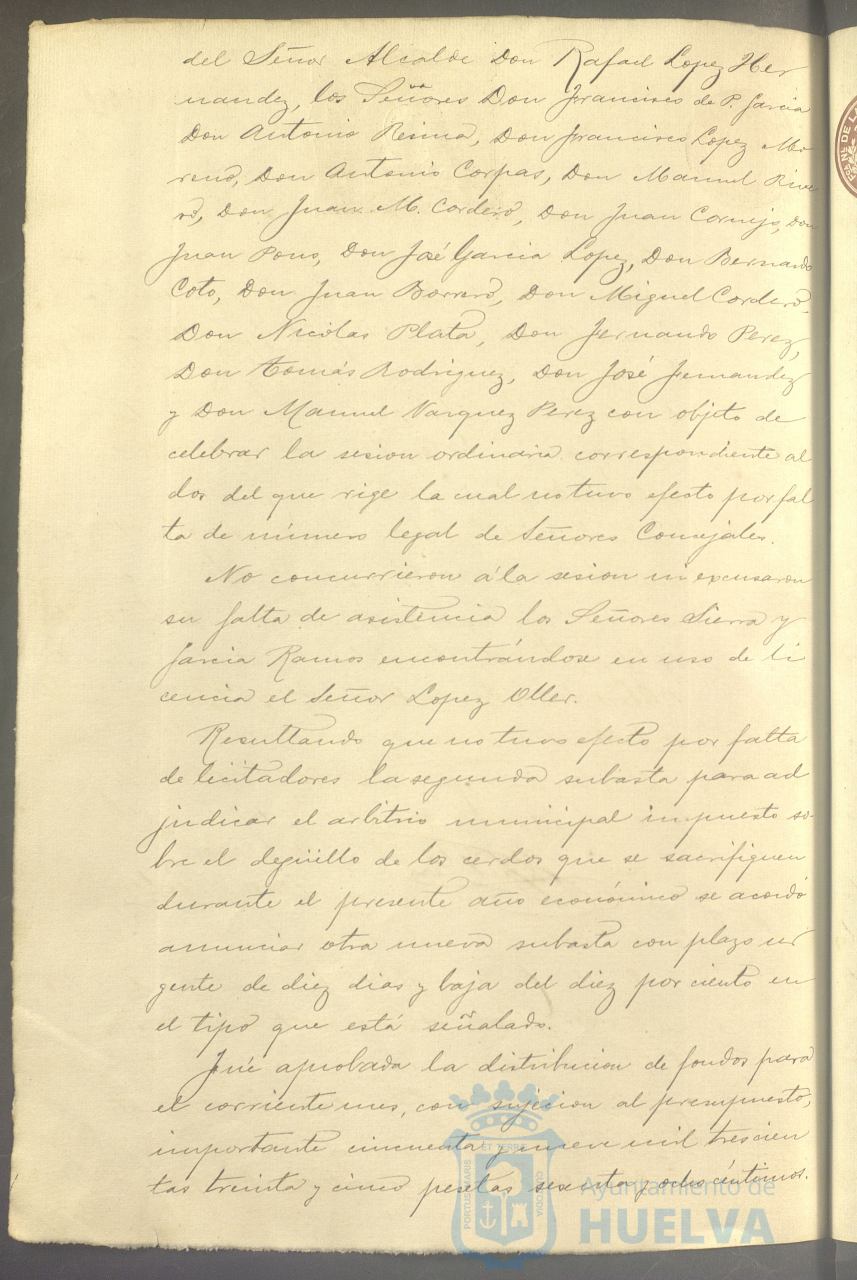 del Señor Alcalde Don Rafael Lopez Her
nandez, los Señores Don Francisco de P. Garcia
Don Antonio Resina, Don Francisco Lopez Mo-
reno, Don Antonio Corpas, Don Manuel Rive
ro, Don Juan M. Cordero, Don Juan Cornejo, Don
Juan Pons, Don José Garcia Lopez, Don Bernardo
Coto, Don Juan Borrero, Don Miguel Cordero,
Don Nicolas Plata, Don Fernando Perez,
Don Tomás Rodriguez, Don José Fernandez
y Don Manuel Vazquez Perez con objeto de
celebrar la sesion ordinaria correspondiente al
dos del que rige la cual no tuvo efecto por fal
ta de número legal de Señores Concejales.
No concurrieron á la sesion ni excusaron
su falta de asistencia los Señores Sierra y
Garcia Ramos encontrándose en uso de li
cencia el Señor Lopez Oller.
Resultando que no tuvo efecto por falta
de licitadores la segunda subasta para ad
judicar el arbitrio municipal impuesto so-
bre el degüello de los cerdos que se sacrifiquen
durante el presente año económico se acordó
anunciar otra nueva subasta con plazo ur
gente de diez dias y baja del diez por ciento en
el tipo que está señalado.
Fué aprobada la distribucion de fondos para
el corriente mes, con sujecion al presupuesto,
importante cincuenta y nueve mil trescien
tas treinta y cinco pesetas sesenta y ocho céntimos.
PORTUS MARIS ET TERRE CUSTODIA
Ayuntamiento de
HUELVA